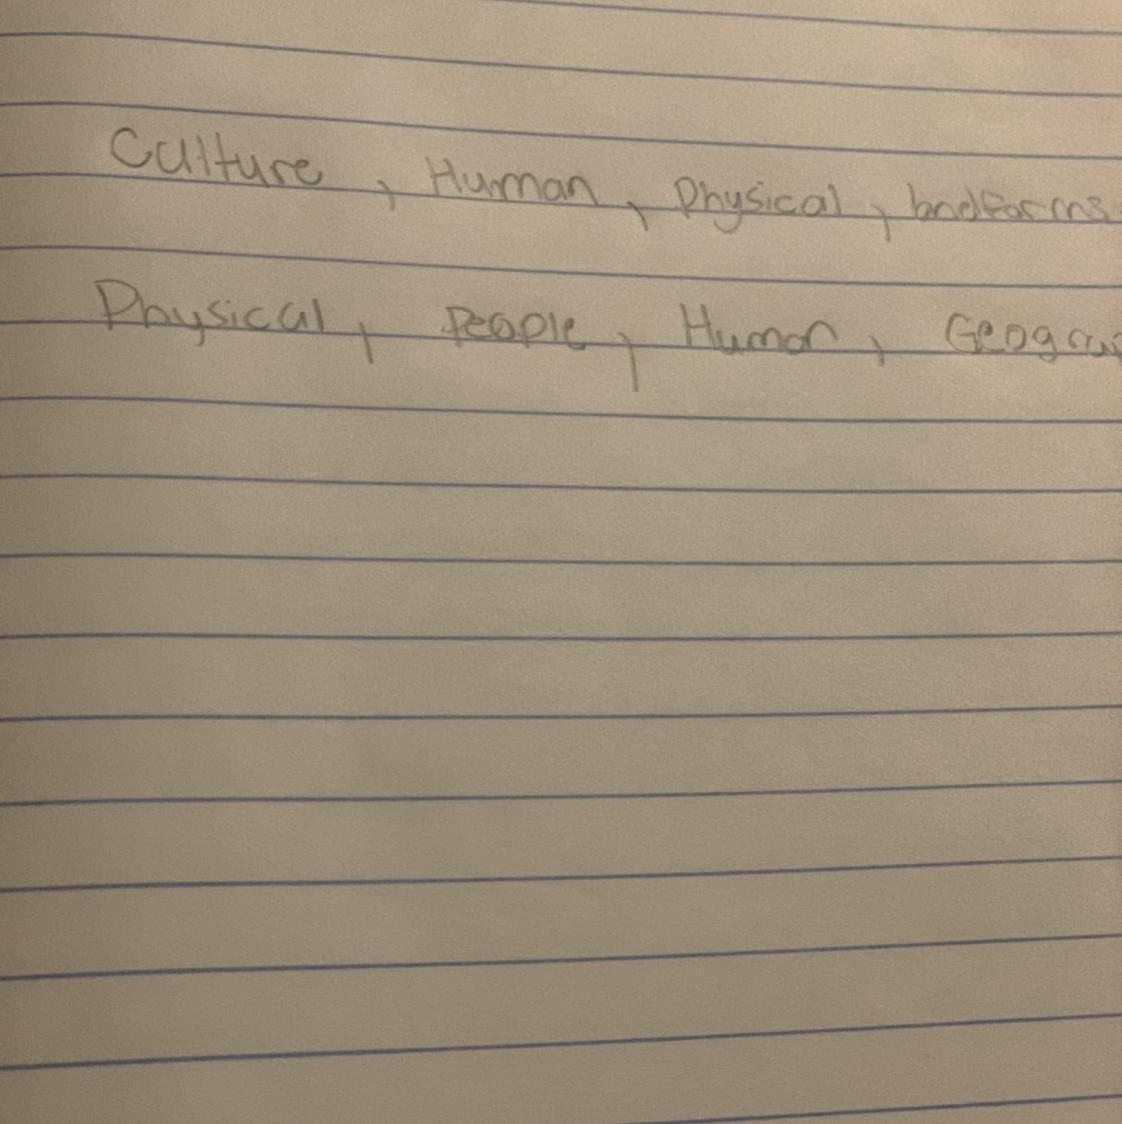 Culture, Human, Physical, landforms
Physical, People, Human,